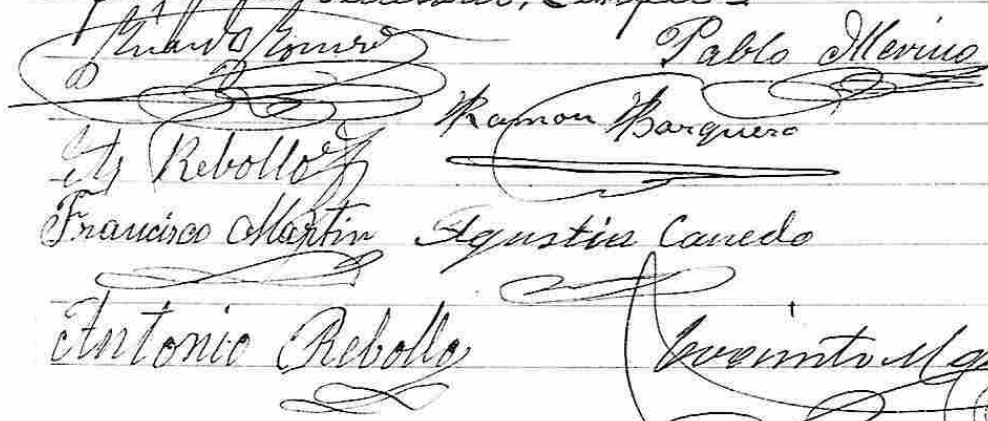 Secretario,
Romero Pablo Merino
Ramon Barquero
Rebollo
Francisco Martin Agustin Canedo
Antonio Rebollo Jacinto